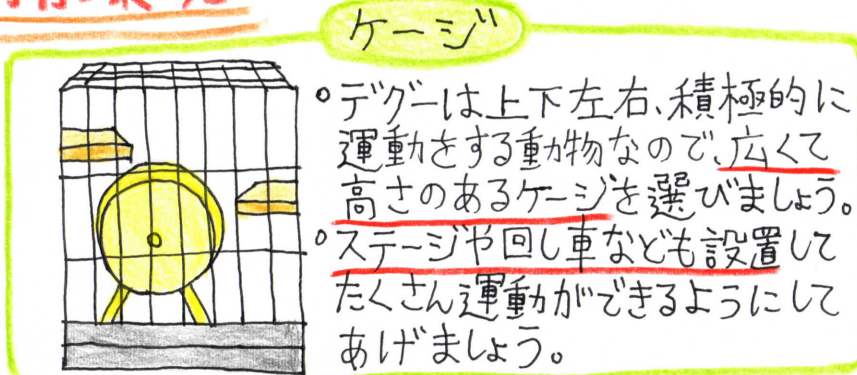 ケージ
デグーは上下左右、積極的に
運動をする動物なので、広くて
高さのあるケージを選びましょう。
ステージや回し車なども設置して
たくさん運動ができるようにして
あげましょう。